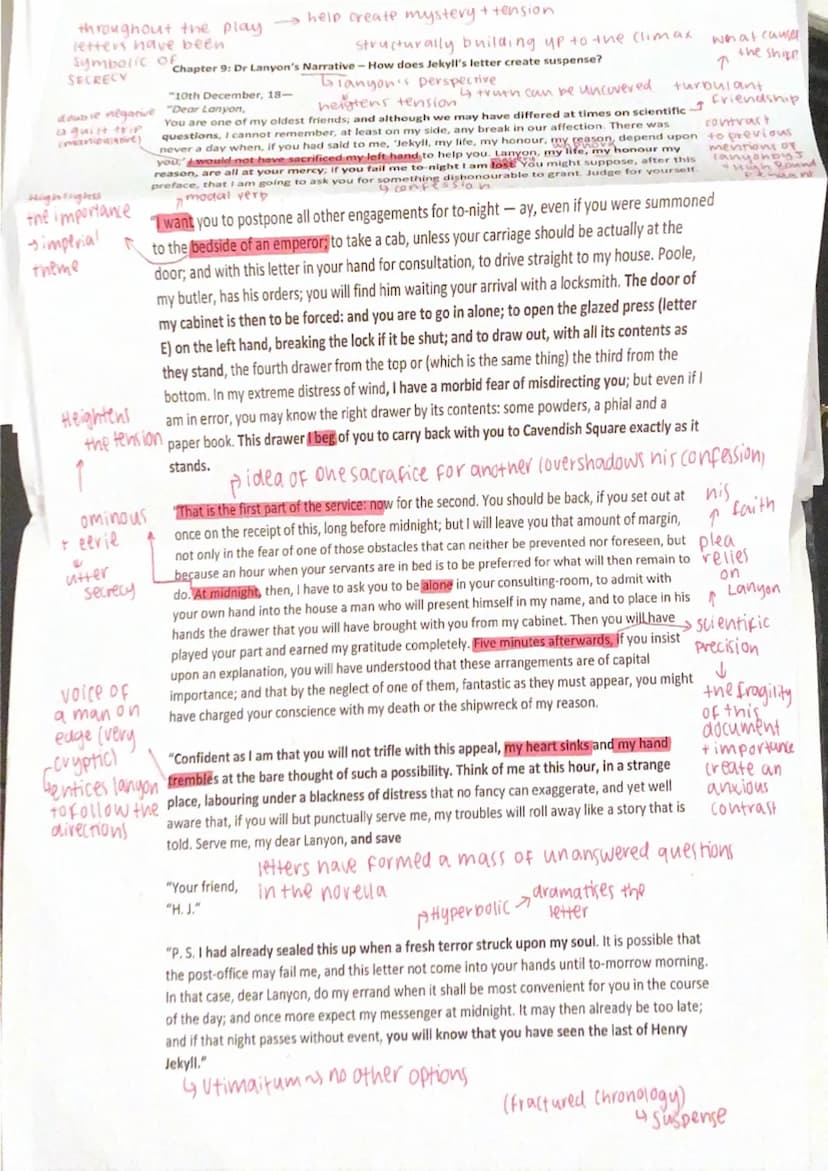 throughout the play → help create mystery + tension
letters have been
symbolic of
SECRECY
structurally building up to the climax
what caused
the ship?
Chapter 9: Dr Lanyon's Narrative – How does Jekyll's letter create suspense?
↳ lanyon's perspective
↳ truth can be uncovered
turbulant
friendship
"10th December, 18—
heigtens tension
"Dear Lanyon,
double negative
↳ guilt trip
(manipulative)
contrast
to previous
mentions of
lanyon by J
You are one of my oldest friends; and although we may have differed at times on scientific
questions, I cannot remember, at least on my side, any break in our affection. There was
never a day when, if you had said to me, 'Jekyll, my life, my honour, my reason, depend upon
you,' I would not have sacrificed my left hand to help you. Lanyon, my life, my honour my
reason, are all at your mercy; if you fail me to-night I am lost. You might suppose, after this
preface, that I am going to ask you for something dishonourable to grant. Judge for yourself.
↳ confession
modal verb
Highlights
the importance
→ imperial
theme
"I want you to postpone all other engagements for to-night — ay, even if you were summoned
to the bedside of an emperor; to take a cab, unless your carriage should be actually at the
door; and with this letter in your hand for consultation, to drive straight to my house. Poole,
my butler, has his orders; you will find him waiting your arrival with a locksmith. The door of
my cabinet is then to be forced: and you are to go in alone; to open the glazed press (letter
E) on the left hand, breaking the lock if it be shut; and to draw out, with all its contents as
they stand, the fourth drawer from the top or (which is the same thing) the third from the
bottom. In my extreme distress of wind, I have a morbid fear of misdirecting you; but even if I
am in error, you may know the right drawer by its contents: some powders, a phial and a
paper book. This drawer I beg of you to carry back with you to Cavendish Square exactly as it
stands.
Heightens
the tension
↑
ominous
+ eerie
utter
secrecy
idea of one sacrafice for another (overshadows his confession)
"That is the first part of the service: now for the second. You should be back, if you set out at
once on the receipt of this, long before midnight; but I will leave you that amount of margin,
not only in the fear of one of those obstacles that can neither be prevented nor foreseen, but
because an hour when your servants are in bed is to be preferred for what will then remain to
do. At midnight, then, I have to ask you to be alone in your consulting-room, to admit with
your own hand into the house a man who will present himself in my name, and to place in his
hands the drawer that you will have brought with you from my cabinet. Then you will have
played your part and earned my gratitude completely. Five minutes afterwards, if you insist
upon an explanation, you will have understood that these arrangements are of capital
importance; and that by the neglect of one of them, fantastic as they must appear, you might
have charged your conscience with my death or the shipwreck of my reason.
his
↑ faith
plea
relies
on
↑ Lanyon
→ scientific
precision
↓
the fragility
of this
document
+ importance
create an
anxious
contrast
voice of
a man on
edge (very
cryptic)
↳ entices lanyon
to follow the
directions
"Confident as I am that you will not trifle with this appeal, my heart sinks and my hand
trembles at the bare thought of such a possibility. Think of me at this hour, in a strange
place, labouring under a blackness of distress that no fancy can exaggerate, and yet well
aware that, if you will but punctually serve me, my troubles will roll away like a story that is
told. Serve me, my dear Lanyon, and save
letters have formed a mass of unanswered questions
in the novella
"Your friend,
"H. J."
Hyperbolic → dramatises the
letter
"P. S. I had already sealed this up when a fresh terror struck upon my soul. It is possible that
the post-office may fail me, and this letter not come into your hands until to-morrow morning.
In that case, dear Lanyon, do my errand when it shall be most convenient for you in the course
of the day; and once more expect my messenger at midnight. It may then already be too late;
and if that night passes without event, you will know that you have seen the last of Henry
Jekyll."
↳ Utimaitum ~> no other options
(fractured chronology)
↳ suspense